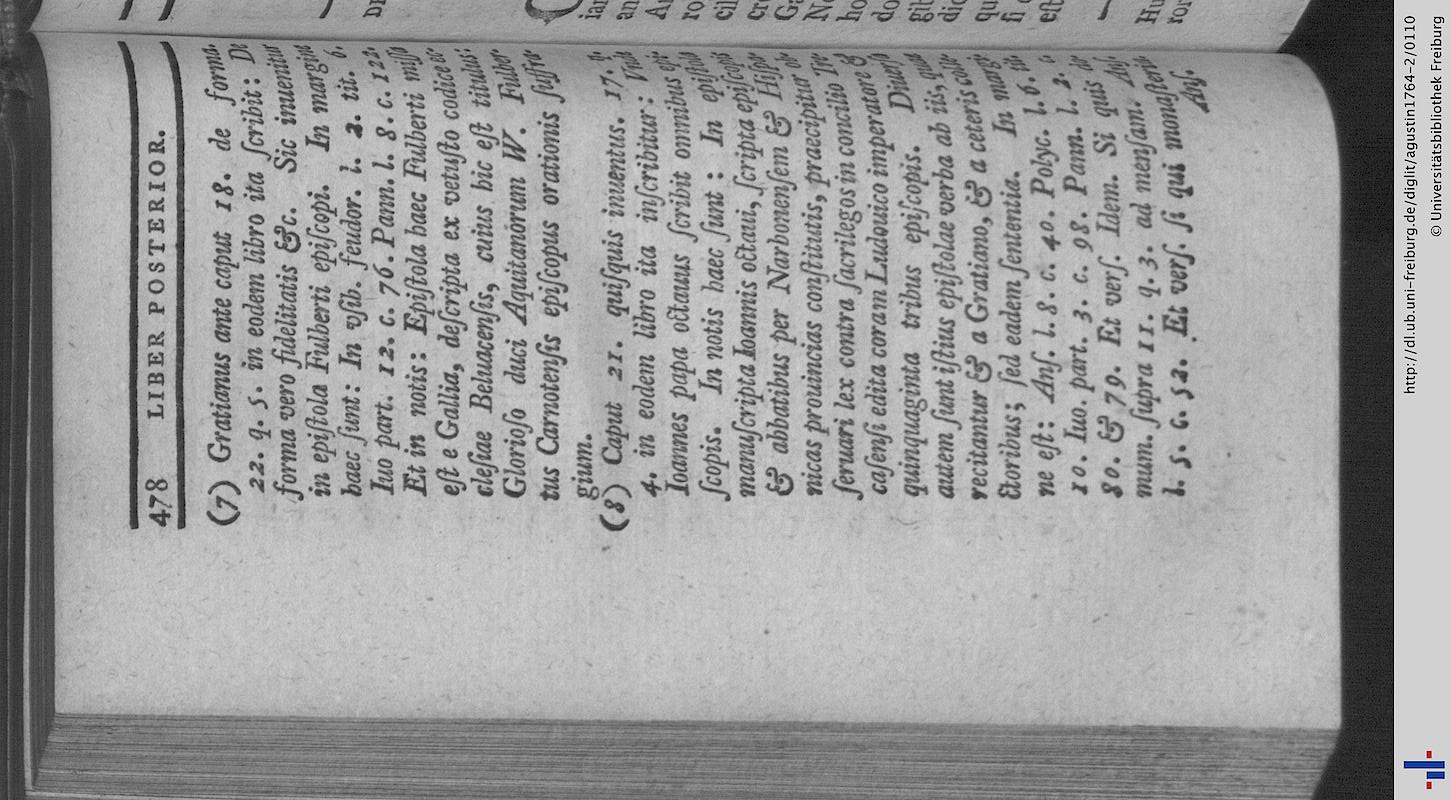 478 LIBER POSTERIOR.
(7) Gratianus ante caput 18. de forma.
22. q. 5. in eodem libro ita ſcribit: De
forma vero fidelitatis &c. Sic inuenitur
in epiſtola Fulberti epiſcopi. In margine
haec ſunt: In vſib. feudor. l. 2. tit. 6.
Iuo part. 12. c. 76. Pann. l. 8. c. 122.
Et in notis: Epiſtola haec Fulberti miſſa
eſt e Gallia, deſcripta ex vetuſto codice ec-
cleſiae Beluacenſis, cuius hic eſt titulus:
Glorioſo duci Aquitanorum W. Fulber-
tus Carnotenſis epiſcopus orationis ſuffra-
gium.
(8) Caput 21. quiſquis inuentus. 17. q.
4. in eodem libro ita inſcribitur:
Ioannes papa octauus ſcribit omnibus epi-
ſcopis. In notis haec ſunt: In epiſtola
manuſcripta Ioannis octaui, ſcripta epiſcopis
& abbatibus per Narbonenſem & Hiſpa-
nicas prouincias conſtitutis, praecipitur
ſeruari lex contra ſacrilegos in concilio Tri-
caſenſi edita coram Ludouico imperatore &
quinquaginta tribus epiſcopis. Diuerſa
autem ſunt iſtius epiſtolae verba ab iis, quae
recitantur & a Gratiano, & a ceteris colle-
ctoribus; ſed eadem ſententia. In margi-
ne eſt: Anſ. l. 8. c. 40. Polyc. l. 6. tit.
10. Iuo. part. 3. c. 98. Pann. l. 2.
80. & 79. Et verſ. Idem. Si quis
mum. ſupra 11. q. 3. ad menſam. Anſ.
l. 5. c. 52. Et verſ. ſi qui monaſteria
Anſ.
DE
http://dl.ub.uni-freiburg.de/diglit/agustin1764-2/0110
© Universitätsbibliothek Freiburg